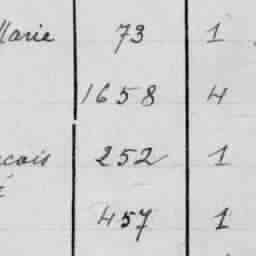 Marie 73 1
1658 4
çois 252 1
457 1